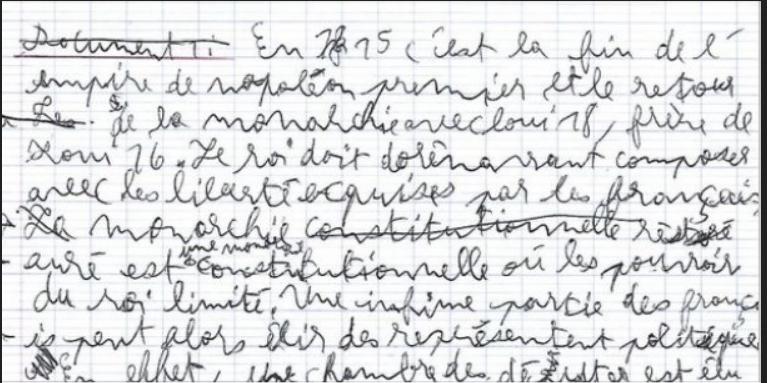 Document 1: En 1815 c'est la fin de l'
empire de napoléon premier et le retour
de la monarchie avec loui 18, frère de
Loui 16. Le roi doit dorénavant composer
avec les liberté acquises par les français
La monarchie constitutionnelle rest
auré est une monar constitutionnelle où les pouvoir
du roi limité. Une infime partie des franç
is peut alors élir des représentent politique
En effet, une chambre des députer est élu